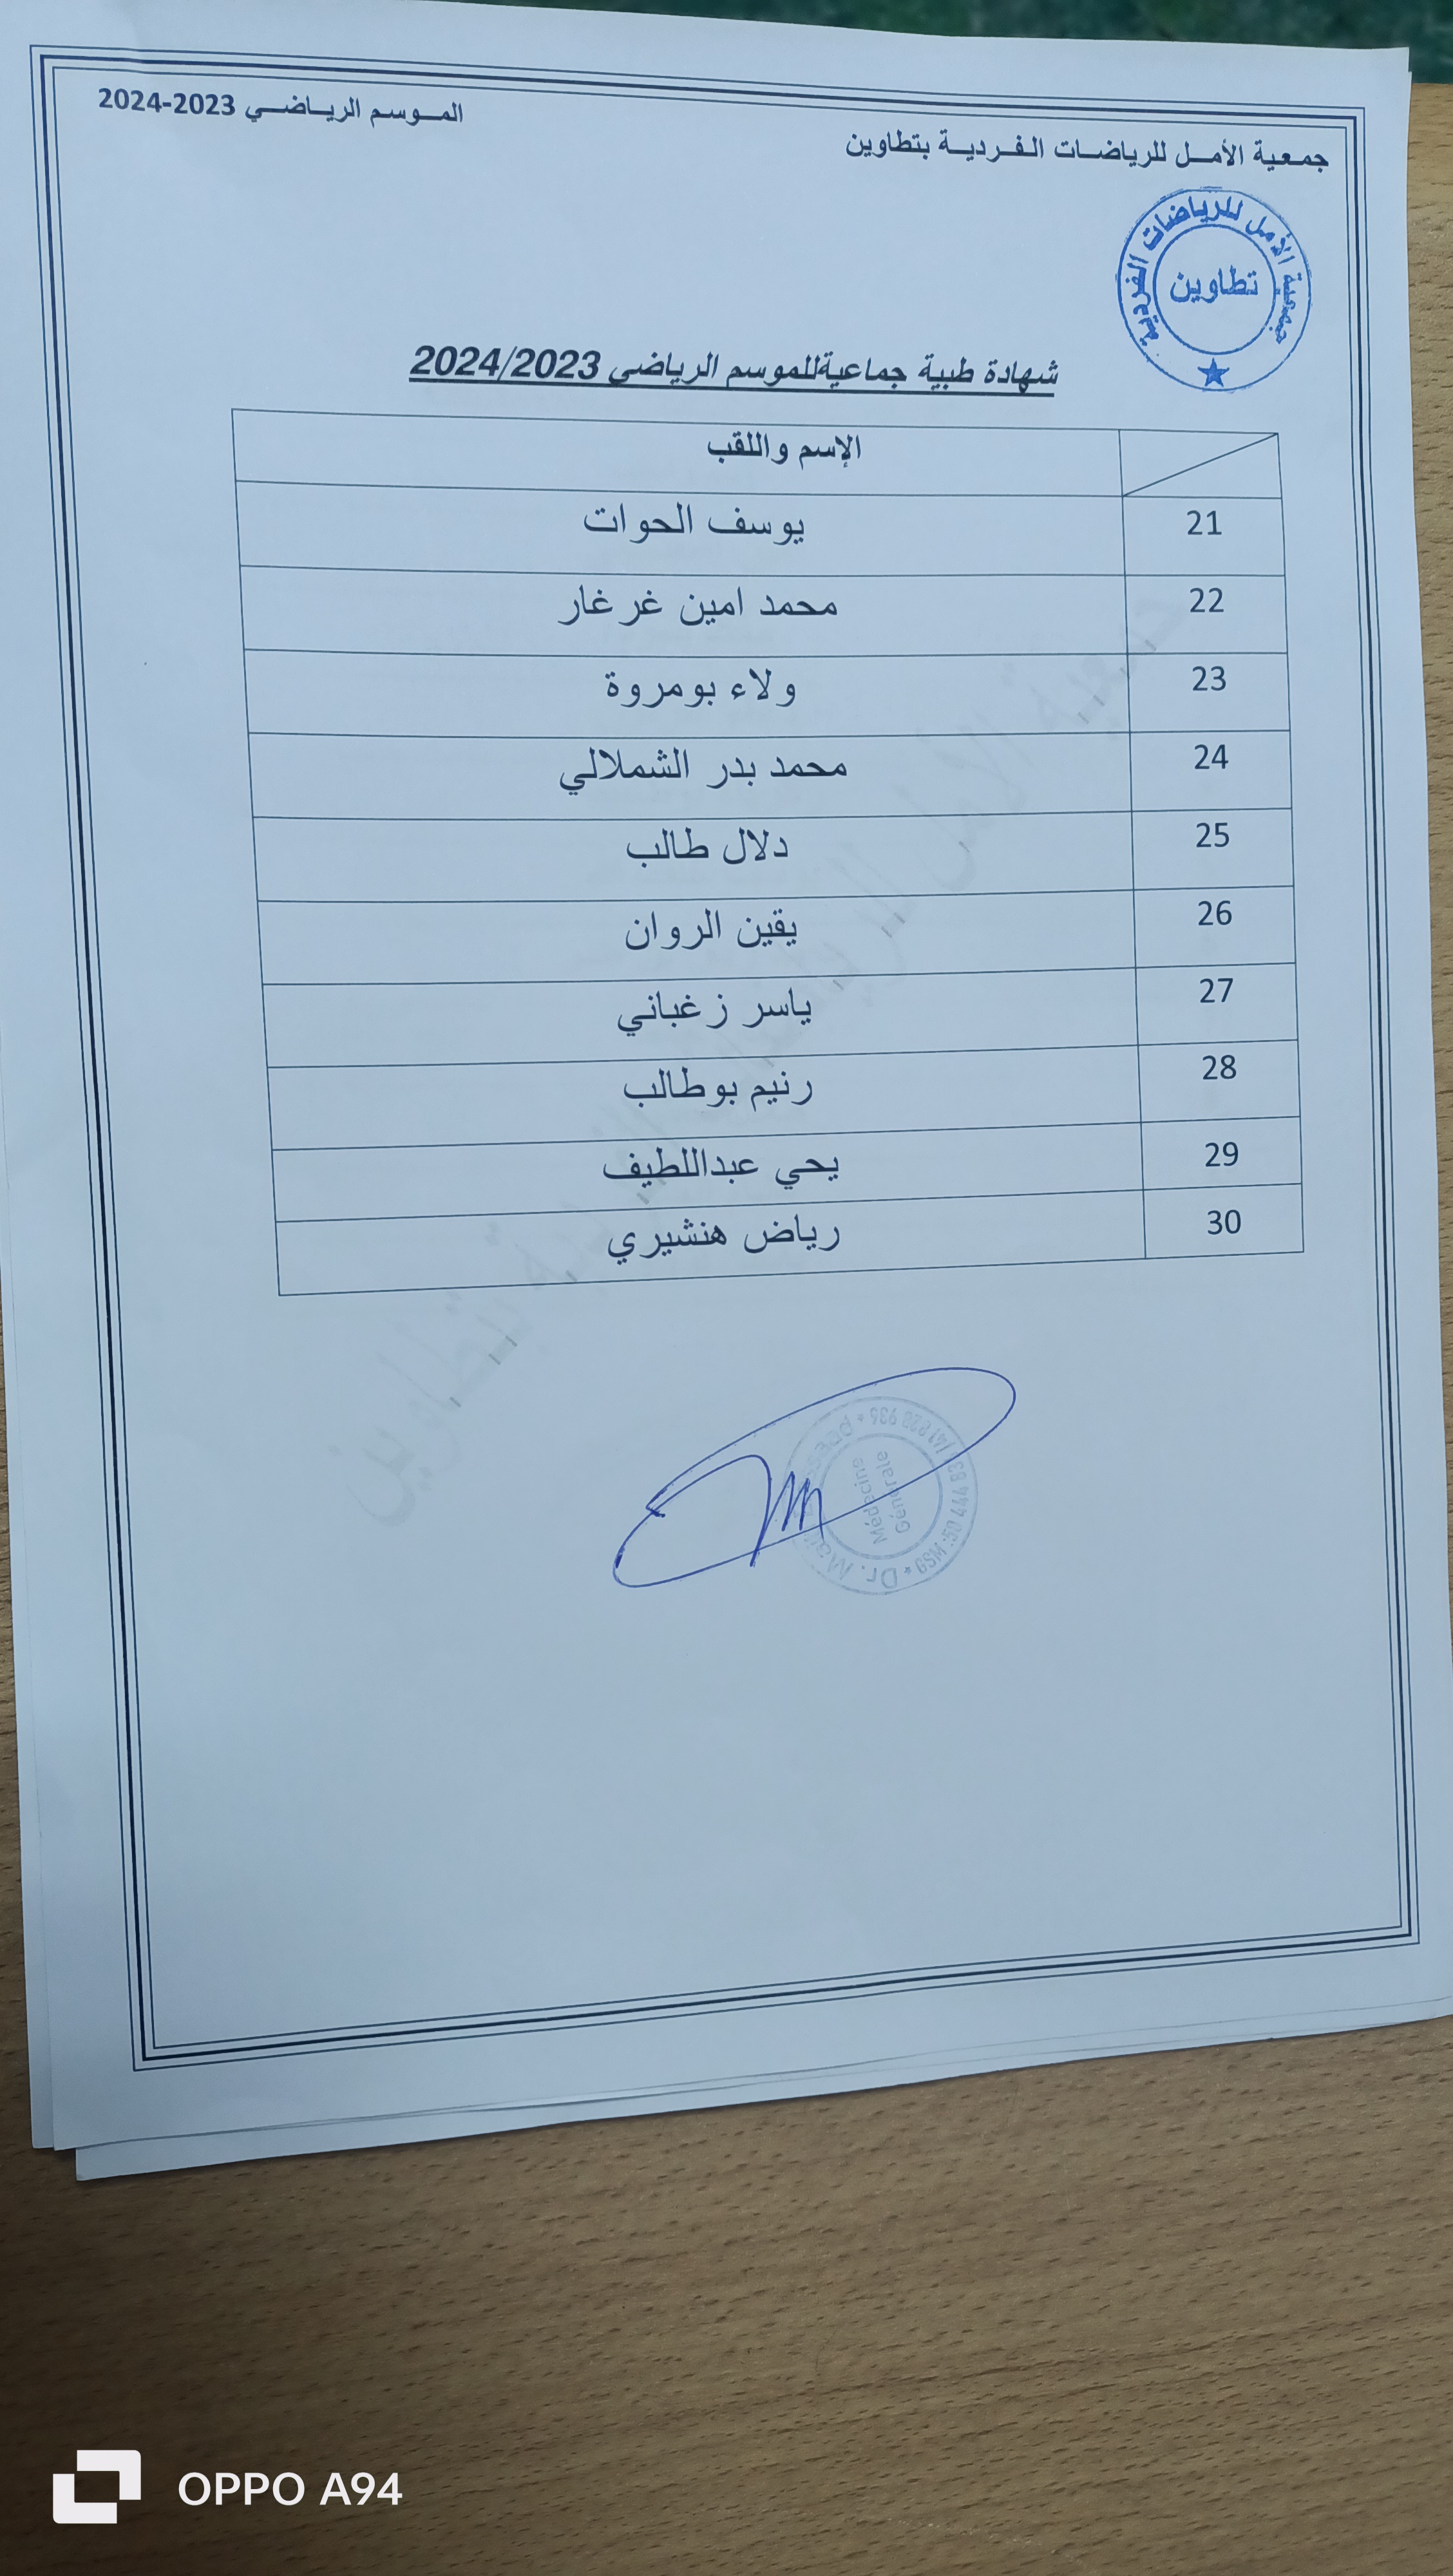 جمعية الأمل للرياضات الفردية بتطاوين
الموسم الرياضي 2023-2024
جمعية الأمل للرياضات الفردية
تطاوين
شهادة طبية جماعيةللموسم الرياضي 2024/2023
الإسم واللقب
21 يوسف الحوات
22 محمد امين غرغار
23 ولاء بومروة
24 محمد بدر الشملالي
25 دلال طالب
26 يقين الروان
27 ياسر زغباني
28 رنيم بوطالب
29 يحي عبداللطيف
30 رياض هنشيري
جمعية الأمل للرياضات الفردية بتطاوين
Médecine
Générale
Dr.
GSM :50 444
OPPO A94